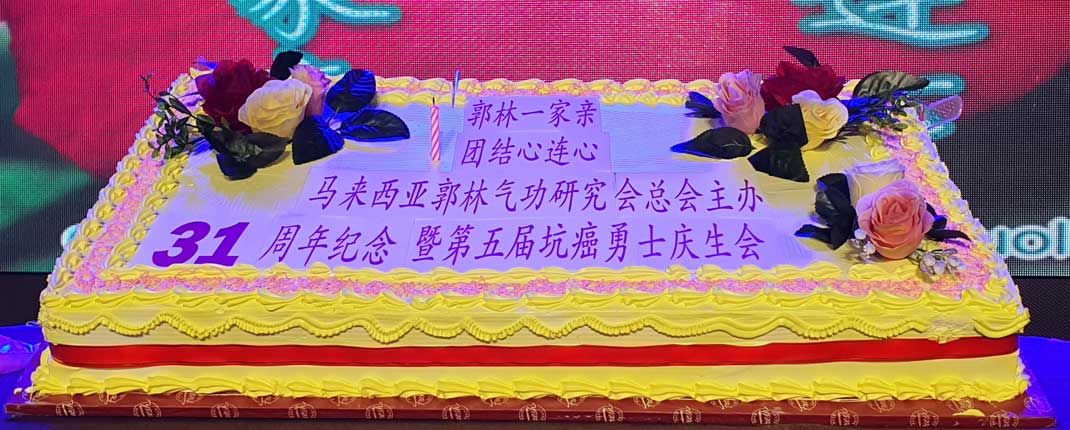 郭林一家亲
团结心连心
马来西亚郭林气功研究会总会主办
31周年纪念 暨第五届坑癌勇士庆生会